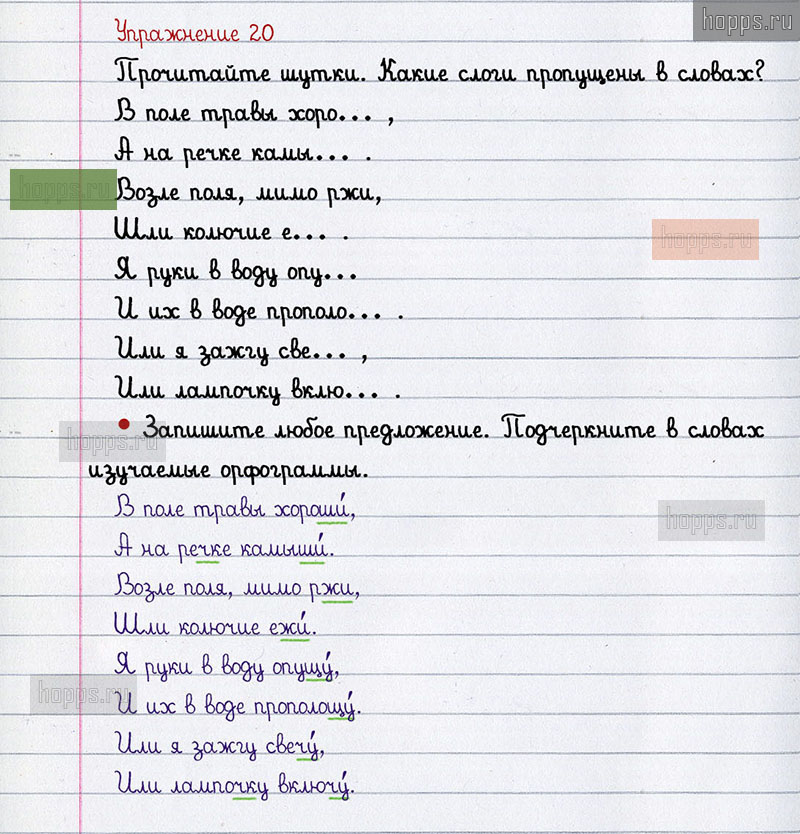 hopps.ru
Упражнение 20
Прочитайте шутки. Какие слоги пропущены в словах?
В поле травы хоро... ,
А на речке камы... .
hopps.ru
Возле поля, мимо ржи,
Шли колючие е... .
hopps.ru
Я руки в воду опу...
И их в воде прополо... .
Или я зажгу све... ,
Или лампочку вклю... .
• Запишите любое предложение. Подчеркните в словах
hopps.ru
изучаемые орфограммы.
В поле травы хороши́,
hopps.ru
А на речке камыши́.
Возле поля, мимо ржи,
Шли колючие ежи́.
Я руки в воду опущу́,
hopps.ru
И их в воде прополощу́.
Или я зажгу свечу́,
Или лампочку включу́.